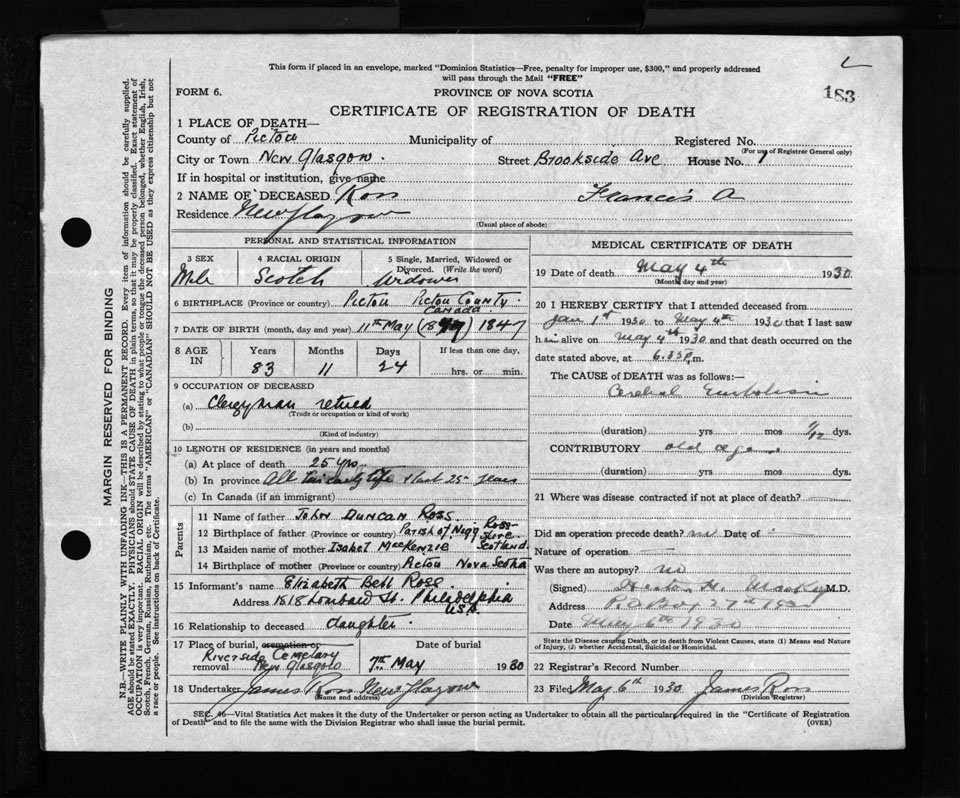 This form if placed in an envelope, marked "Dominion Statistics—Free, penalty for improper use, $300," and properly addressed
will pass through the Mail "FREE"
183
FORM 6.
PROVINCE OF NOVA SCOTIA
CERTIFICATE OF REGISTRATION OF DEATH
1 PLACE OF DEATH—
County of Pictou Municipality of Registered No.
(For use of Registrar General only)
City or Town New Glasgow. Street Brookside Ave House No. 7
If in hospital or institution, give name
2 NAME OF DECEASED Ross Francis A
Residence New Glasgow
(Usual place of abode)
PERSONAL AND STATISTICAL INFORMATION
3 SEX 4 RACIAL ORIGIN 5 Single, Married, Widowed or
Divorced. (Write the word)
Male Scotch Widower
6 BIRTHPLACE (Province or country) Pictou Pictou County.
Canada.
7 DATE OF BIRTH (month, day and year) 11th May 1847
8 AGE IN Years Months Days If less than one day,
83 11 24 hrs. or min.
9 OCCUPATION OF DECEASED
(a) Clergyman retired
(Trade or occupation or kind of work)
(b)
(Kind of industry)
10 LENGTH OF RESIDENCE (in years and months)
(a) At place of death 25 yrs
(b) In province All his early life & last 25 years
(c) In Canada (if an immigrant)
Parents
11 Name of father John Duncan Ross.
12 Birthplace of father (Province or country) Parish of Nigg Ross-
Shire.
Scotland.
13 Maiden name of mother Isabel MacKenzie
14 Birthplace of mother (Province or country) Pictou Nova Scotia
15 Informant's name Elizabeth Bell Ross.
Address 1818 Lombard St. Philadelphia
U.S.A.
16 Relationship to deceased daughter.
17 Place of burial, cremation or Date of burial
Riverside Cemetary
removal New Glasgow 7th May 1930
18 Undertaker James Ross New Glasgow
(Name and address)
MEDICAL CERTIFICATE OF DEATH
19 Date of death May 4th 1930.
(Month, day and year)
20 I HEREBY CERTIFY that I attended deceased from
Jan 1st 1930 to May 4th 1930 that I last saw
him alive on May 4th 1930 and that death occurred on the
date stated above, at 6.35 p.m.
The CAUSE of DEATH was as follows:—
Cerebral Embolism
(duration) yrs mos dys.
CONTRIBUTORY old age
(duration) yrs. mos dys.
21 Where was disease contracted if not at place of death?
Did an operation precede death? no Date of
Nature of operation
Was there an autopsy? no
(Signed) M.D.
Address
Date May 6th 1930
State the Disease causing Death, or in death from Violent Causes, state (1) Means and Nature
of Injury, (2) whether Accidental, Suicidal or Homicidal.
22 Registrar's Record Number
23 Filed May 6th 1930 James Ross
(Division Registrar)
SEC. 46—Vital Statistics Act makes it the duty of the Undertaker or person acting as Undertaker to obtain all the particulars required in the "Certificate of Registration
of Death" and to file the same with the Division Registrar who shall issue the burial permit.
(OVER)
MARGIN RESERVED FOR BINDING
N.B.—WRITE PLAINLY WITH UNFADING INK—THIS IS A PERMANENT RECORD. Every item of information should be carefully supplied.
AGE should be stated EXACTLY. PHYSICIANS should STATE CAUSE OF DEATH in plain terms, so that it may be properly classified. Exact statement of
OCCUPATION is very important. RACIAL ORIGIN will be described by stating to what people or tongue the deceased person belonged, whether English, Irish,
Scotch, French, German, Russian, Ruthenian, etc. The terms "AMERICAN" or "CANADIAN" SHOULD NOT BE USED as they express citizenship but not
a race or people. See instructions on back of Certificate.